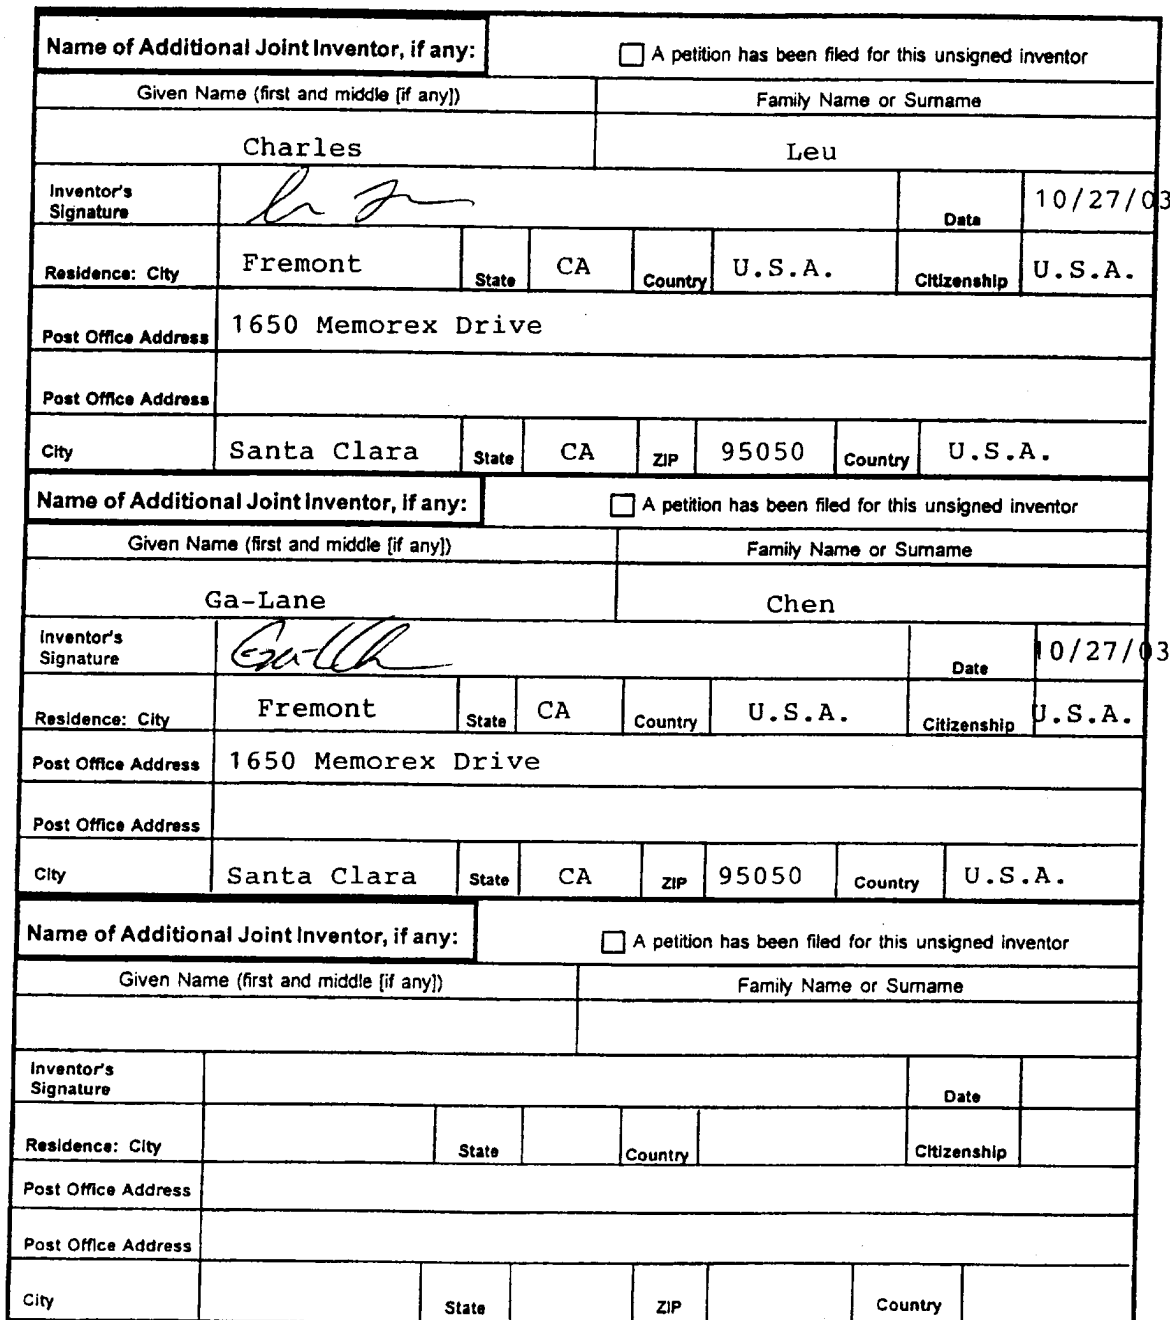 Name of Additional Joint Inventor, if any: A petition has been filed for this unsigned inventor
Given Name (first and middle [if any]) Family Name or Surname
Charles Leu
Inventor's
Signature Date 10/27/03
Residence: City Fremont State CA Country U.S.A. Citizenship U.S.A.
Post Office Address 1650 Memorex Drive
Post Office Address
City Santa Clara State CA ZIP 95050 Country U.S.A.
Name of Additional Joint Inventor, if any: A petition has been filed for this unsigned inventor
Given Name (first and middle [if any]) Family Name or Surname
Ga-Lane Chen
Inventor's
Signature Date 10/27/03
Residence: City Fremont State CA Country U.S.A. Citizenship U.S.A.
Post Office Address 1650 Memorex Drive
Post Office Address
City Santa Clara State CA ZIP 95050 Country U.S.A.
Name of Additional Joint Inventor, if any: A petition has been filed for this unsigned inventor
Given Name (first and middle [if any]) Family Name or Surname
Inventor's
Signature Date
Residence: City State Country Citizenship
Post Office Address
Post Office Address
City State ZIP Country